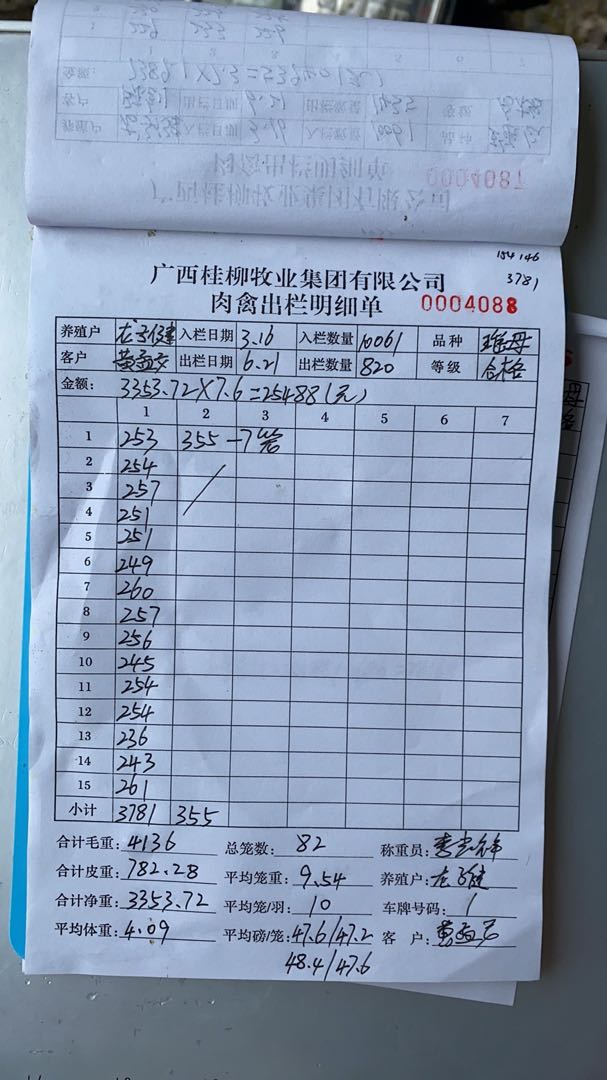 0004087
154 146
3781
广西桂柳牧业集团有限公司
肉禽出栏明细单 0004088
养殖户 入栏日期 3.16 入栏数量 10061 品种 瑶母
客户 出栏日期 6.21 出栏数量 820 等级 合格
金额: 3353.72×7.6=25488(元)
1 2 3 4 5 6 7
1 253 355 -7笼
2 254
3 257
4 251
5 251
6 249
7 260
8 257
9 256
10 245
11 254
12 254
13 236
14 243
15 261
小计 3781 355
合计毛重: 4136 总笼数: 82 称重员:
合计皮重: 782.28 平均笼重: 9.54 养殖户:
合计净重: 3353.72 平均笼/羽: 10 车牌号码: 1
平均体重: 4.09 平均磅/笼: 47.6/47.2 客户:
48.4/47.6